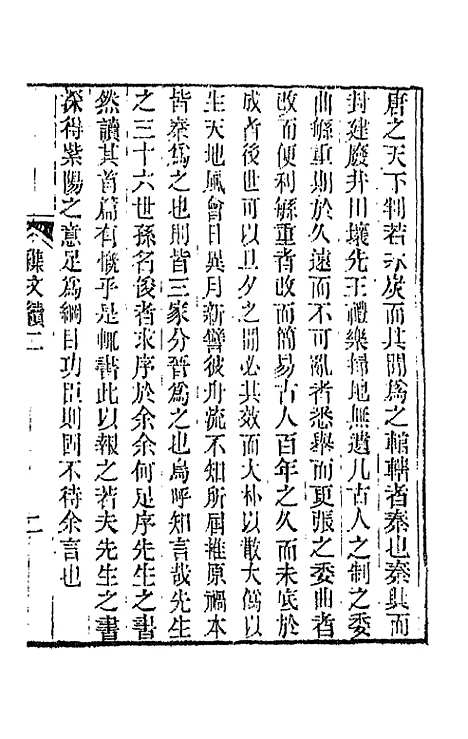 唐之天下判若氷炭而其間爲之樞轄者秦也秦興而
封建廢井田壞先王禮樂掃地無遺凡古人之制之委
曲繇重期於久遠而不可亂者悉舉而更張之委曲者
改而便利繇重者改而簡易古人百年之久而未底於
成者後世可以旦夕之間必其效而大朴以散大僞以
生天地風會日異月新譬彼舟流不知所屆推原禍本
皆秦爲之也則皆三家分晉爲之也烏呼知言哉先生
之三十六世孫名後者求序於余余何足序先生之書
然讀其首篇有慨乎是輒書此以報之若夫先生之書
深得紫陽之意足爲綱目功臣則固不待余言也
雜文續二
二